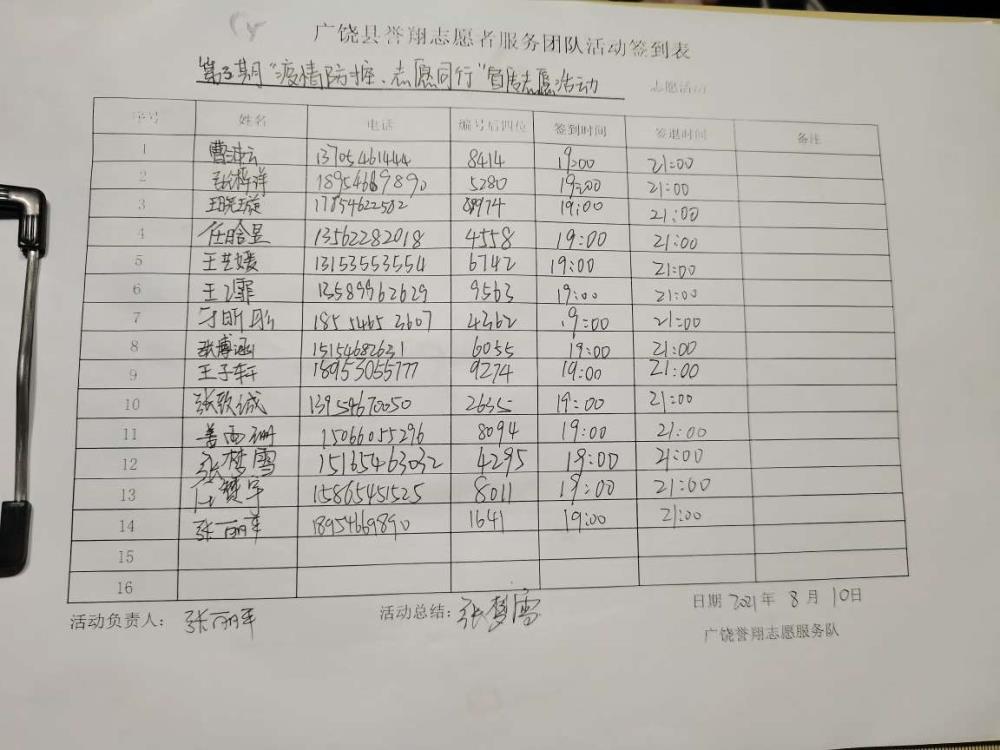 广饶县誉翔志愿者服务团队活动签到表
第3期"疫情防控、志愿同行"宣传志愿活动 志愿活动
序号 姓名 电话 编号后四位 签到时间 签退时间 备注
1 曹沛云 13705461444 8414 19:00 21:00
2 18954669890 5280 19:00 21:00
3 王晓璇 17854622502 8974 19:00 21:00
4 任晗昱 13562282018 4558 19:00 21:00
5 王艺媛 13153553554 6742 19:00 21:00
6 王 霏 13589962629 9563 19:00 21:00
7 18554653607 4362 19:00 21:00
8 张博涵 15154682631 6055 19:00 21:00
9 王子轩 18953055777 9274 19:00 21:00
10 张歌诚 13954670050 2635 19:00 21:00
11 15066055296 8094 19:00 21:00
12 张梦雪 15165463032 4295 19:00 21:00
13 任赞宇 15865451525 8011 19:00 21:00
14 张丽萍 18954669890 1641 19:00 21:00
15
16
活动负责人: 张丽萍 活动总结: 张梦雪 日期 2021年 8月 10日
广饶誉翔志愿服务队